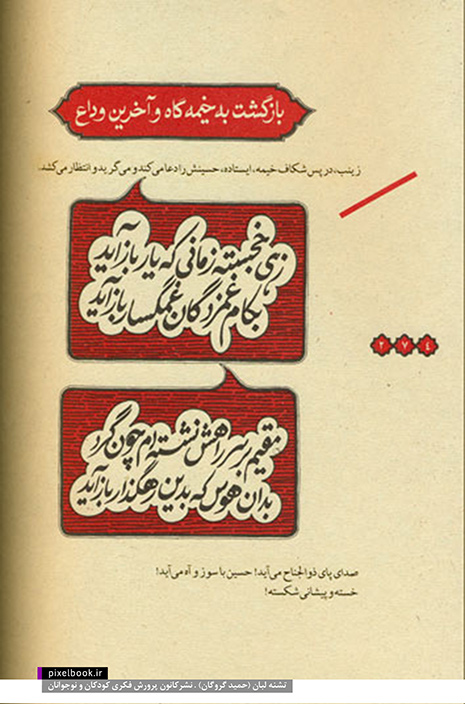 بازگشت به خیمه گاه و آخرین وداع
زینب، در پس شکاف خیمه، ایستاده، حسینش را دعا می کند و می گرید و انتظار می کشد.
زهی خجسته زمانی که یار بازآید
بکام غمزدگان غمگسار بازآید
۲۷٤
مقیم بر سر راهش نشسته ام چون گرد
بدان هوس که بدین رهگذار بازآید
صدای پای ذوالجناح می آید! حسین با سوز و آه می آید!
خسته و پیشانی شکسته!
pixelbook.ir
تشنه لبان (حمید گروگان) . نشر کانون پرورش فکری کودکان و نوجوانان